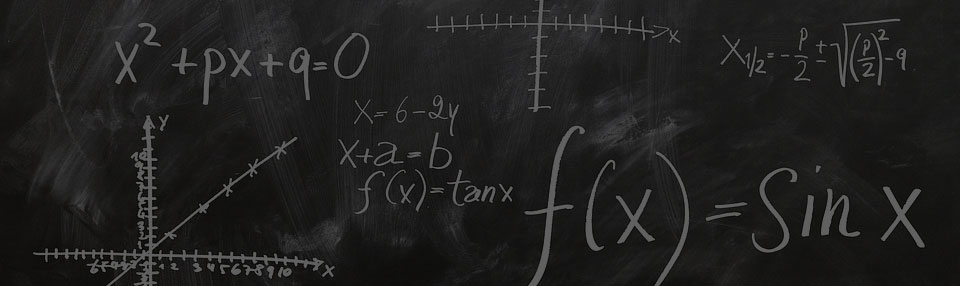 x² + px + q = 0
x
X₁/₂ = -p/2 ± √((p/2)² - q
x = 6 - 2y
x + a = b
f(x) = tanx
f(x) = Sin x
y
10
1 2 3 4 5 6 7 8 9 10
x